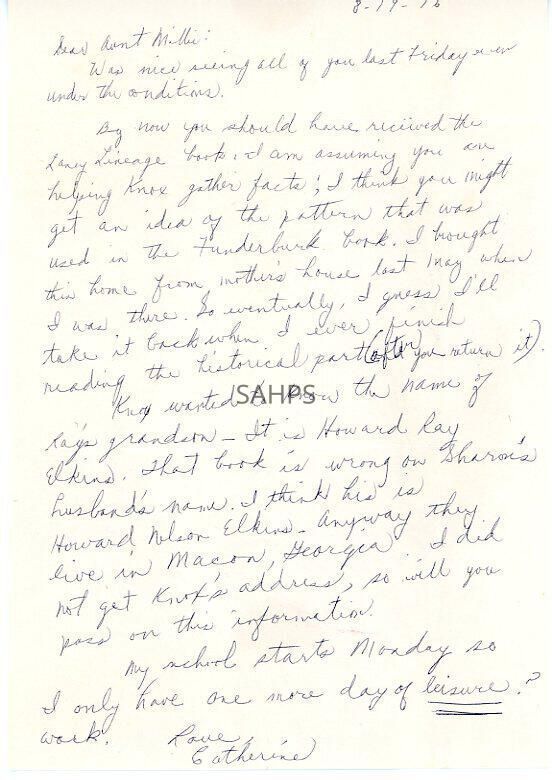 8-19-76
Dear Aunt Millie:
Was nice seeing all of you last Friday even
under the conditions.
By now you should have received the
Laney Lineage book. I am assuming you are
helping Knox gather facts; I think you might
get an idea of the pattern that was
used in the Funderburk book. I brought
this home from mother's house last May when
I was there. So eventually, I guess I'll
take it back when I ever finish
reading the historical part (after you return it).
Knox wanted to know the name of
SAHPS
Ray's grandson - It is Howard Ray
Elkins. That book is wrong on Sharon's
husband's name. I think his is
Howard Nelson Elkins. Anyway they
live in Macon, Georgia. I did
not get Knox's address, so will you
pass on this information.
My school starts Monday so
I only have one more day of leisure?
work. Love,
Catherine